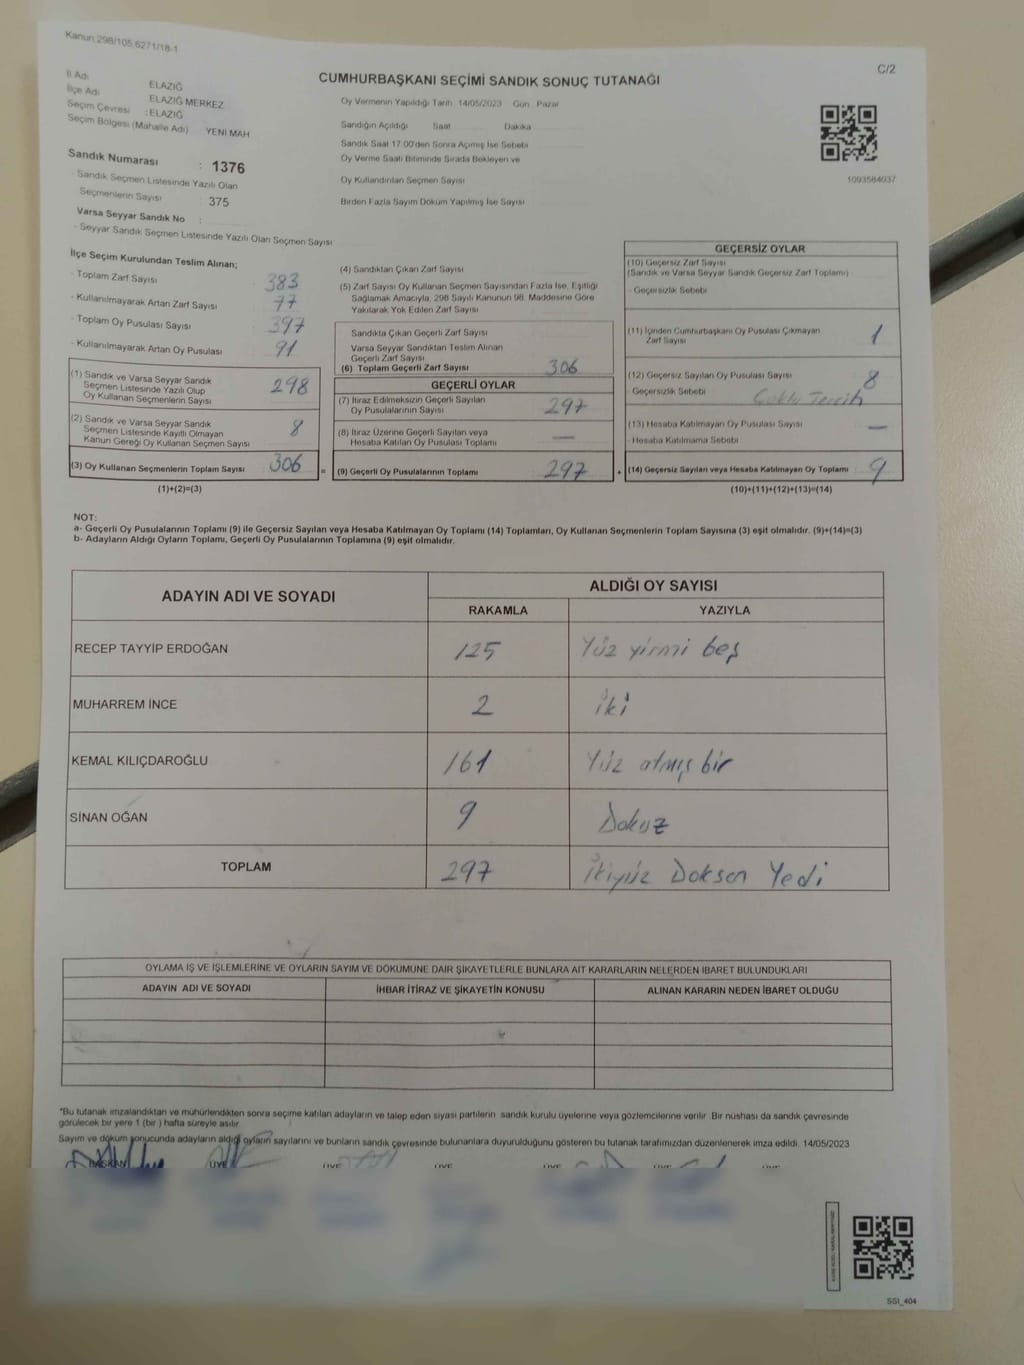 Kanun:298/105,6271/18-1
C/2
CUMHURBAŞKANI SEÇİMİ SANDIK SONUÇ TUTANAĞI
İl Adı ELAZIĞ
İlçe Adı ELAZIĞ MERKEZ
Seçim Çevresi : ELAZIĞ
Seçim Bölgesi (Mahalle Adı) YENİ MAH
Sandık Numarası : 1376
- Sandık Seçmen Listesinde Yazılı Olan
Seçmenlerin Sayısı 375
Varsa Seyyar Sandık No :
- Seyyar Sandık Seçmen Listesinde Yazılı Olan Seçmen Sayısı
Oy Vermenin Yapıldığı Tarih 14/05/2023 Gün : Pazar
Sandığın Açıldığı Saat Dakika
Sandık Saat 17:00'den Sonra Açılmış İse Sebebi
Oy Verme Saati Bitiminde Sırada Bekleyen ve
Oy Kullandırılan Seçmen Sayısı
Birden Fazla Sayım Döküm Yapılmış İse Sayısı
1093584037
İlçe Seçim Kurulundan Teslim Alınan;
- Toplam Zarf Sayısı 383
- Kullanılmayarak Artan Zarf Sayısı 77
- Toplam Oy Pusulası Sayısı 397
- Kullanılmayarak Artan Oy Pusulası 91
(1) Sandık ve Varsa Seyyar Sandık
Seçmen Listesinde Yazılı Olup
Oy Kullanan Seçmenlerin Sayısı 298
(2) Sandık ve Varsa Seyyar Sandık
Seçmen Listesinde Kayıtlı Olmayan
Kanun Gereği Oy Kullanan Seçmen Sayısı 8
(3) Oy Kullanan Seçmenlerin Toplam Sayısı 306 =
(1)+(2)=(3)
(4) Sandıktan Çıkan Zarf Sayısı
(5) Zarf Sayısı Oy Kullanan Seçmen Sayısından Fazla İse, Eşitliği
Sağlamak Amacıyla, 298 Sayılı Kanunun 98. Maddesine Göre
Yakılarak Yok Edilen Zarf Sayısı
Sandıkta Çıkan Geçerli Zarf Sayısı
Varsa Seyyar Sandıktan Teslim Alınan
Geçerli Zarf Sayısı
(6) Toplam Geçerli Zarf Sayısı 306
GEÇERLİ OYLAR
(7) İtiraz Edilmeksizin Geçerli Sayılan
Oy Pusulalarının Sayısı 297
(8) İtiraz Üzerine Geçerli Sayılan veya
Hesaba Katılan Oy Pusulası Toplamı —
(9) Geçerli Oy Pusulalarının Toplamı 297 +
GEÇERSİZ OYLAR
(10) Geçersiz Zarf Sayısı
(Sandık ve Varsa Seyyar Sandık Geçersiz Zarf Toplamı)
- Geçersizlik Sebebi
(11) İçinden Cumhurbaşkanı Oy Pusulası Çıkmayan
Zarf Sayısı 1
(12) Geçersiz Sayılan Oy Pusulası Sayısı 8
- Geçersizlik Sebebi Çoklu Tercih
(13) Hesaba Katılmayan Oy Pusulası Sayısı —
- Hesaba Katılmama Sebebi
(14) Geçersiz Sayılan veya Hesaba Katılmayan Oy Toplamı 9
(10)+(11)+(12)+(13)=(14)
NOT:
a- Geçerli Oy Pusulalarının Toplamı (9) ile Geçersiz Sayılan veya Hesaba Katılmayan Oy Toplamı (14) Toplamları, Oy Kullanan Seçmenlerin Toplam Sayısına (3) eşit olmalıdır. (9)+(14)=(3)
b- Adayların Aldığı Oyların Toplamı, Geçerli Oy Pusulalarının Toplamına (9) eşit olmalıdır.
ADAYIN ADI VE SOYADI ALDIĞI OY SAYISI
RAKAMLA YAZIYLA
RECEP TAYYİP ERDOĞAN 125 Yüz yirmi beş
MUHARREM İNCE 2 iki
KEMAL KILIÇDAROĞLU 161 Yüz atmış bir
SİNAN OĞAN 9 Dokuz
TOPLAM 297 ikiyüz Doksan Yedi
OYLAMA İŞ VE İŞLEMLERİNE VE OYLARIN SAYIM VE DÖKÜMÜNE DAİR ŞİKAYETLERLE BUNLARA AİT KARARLARIN NELERDEN İBARET BULUNDUKLARI
ADAYIN ADI VE SOYADI İHBAR İTİRAZ VE ŞİKAYETİN KONUSU ALINAN KARARIN NEDEN İBARET OLDUĞU
*Bu tutanak imzalandıktan ve mühürlendikten sonra seçime katılan adayların ve talep eden siyasi partilerin sandık kurulu üyelerine veya gözlemcilerine verilir. Bir nüshası da sandık çevresinde
görülecek bir yere 1 (bir) hafta süreyle asılır.
Sayım ve döküm sonucunda adayların aldığı oyların sayılarını ve bunların sandık çevresinde bulunanlara duyurulduğunu gösteren bu tutanak tarafımızdan düzenlenerek imza edildi. 14/05/2023
BAŞKAN ÜYE ÜYE ÜYE ÜYE ÜYE ÜYE
SSI_404